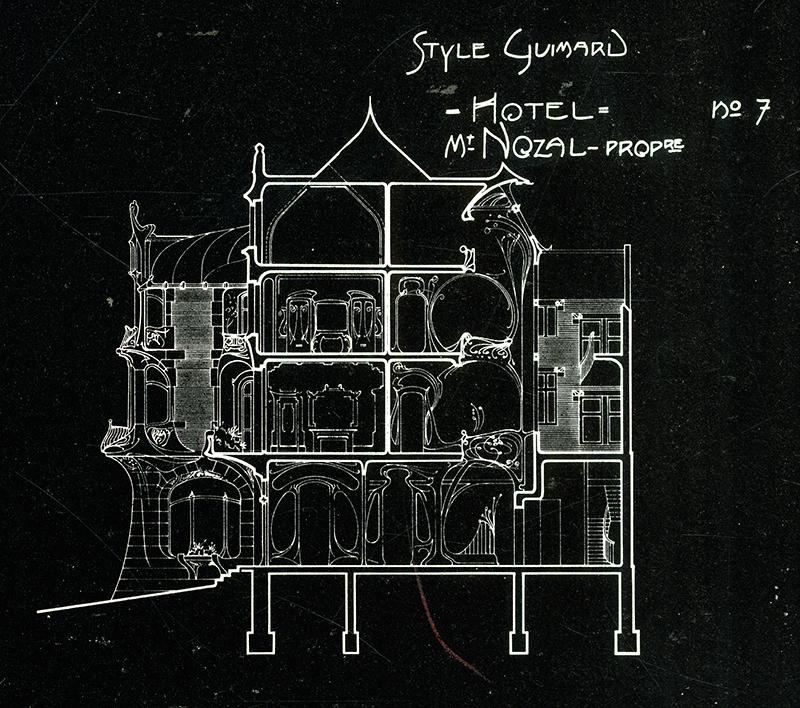 STYLE GUIMARD
- HOTEL =
nº 7
Mt NOZAL - PROPRE